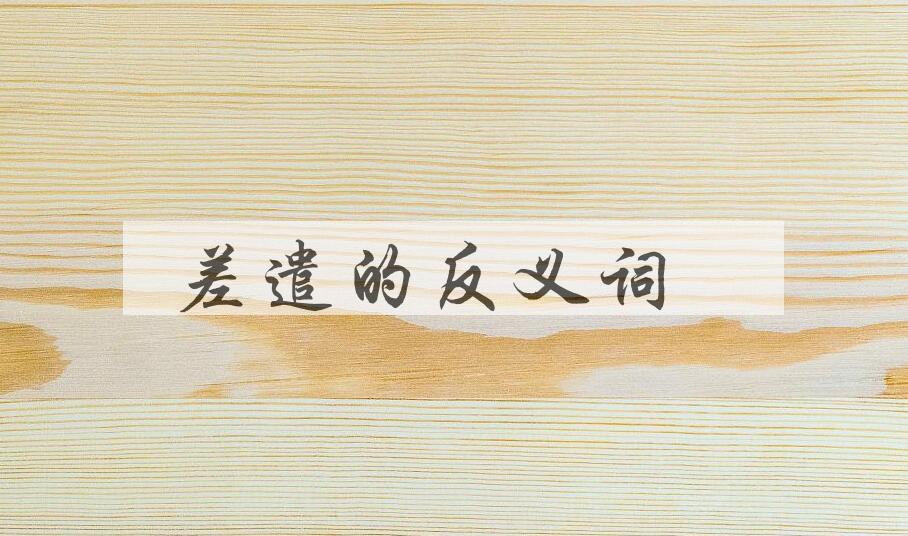 差遣的反义词